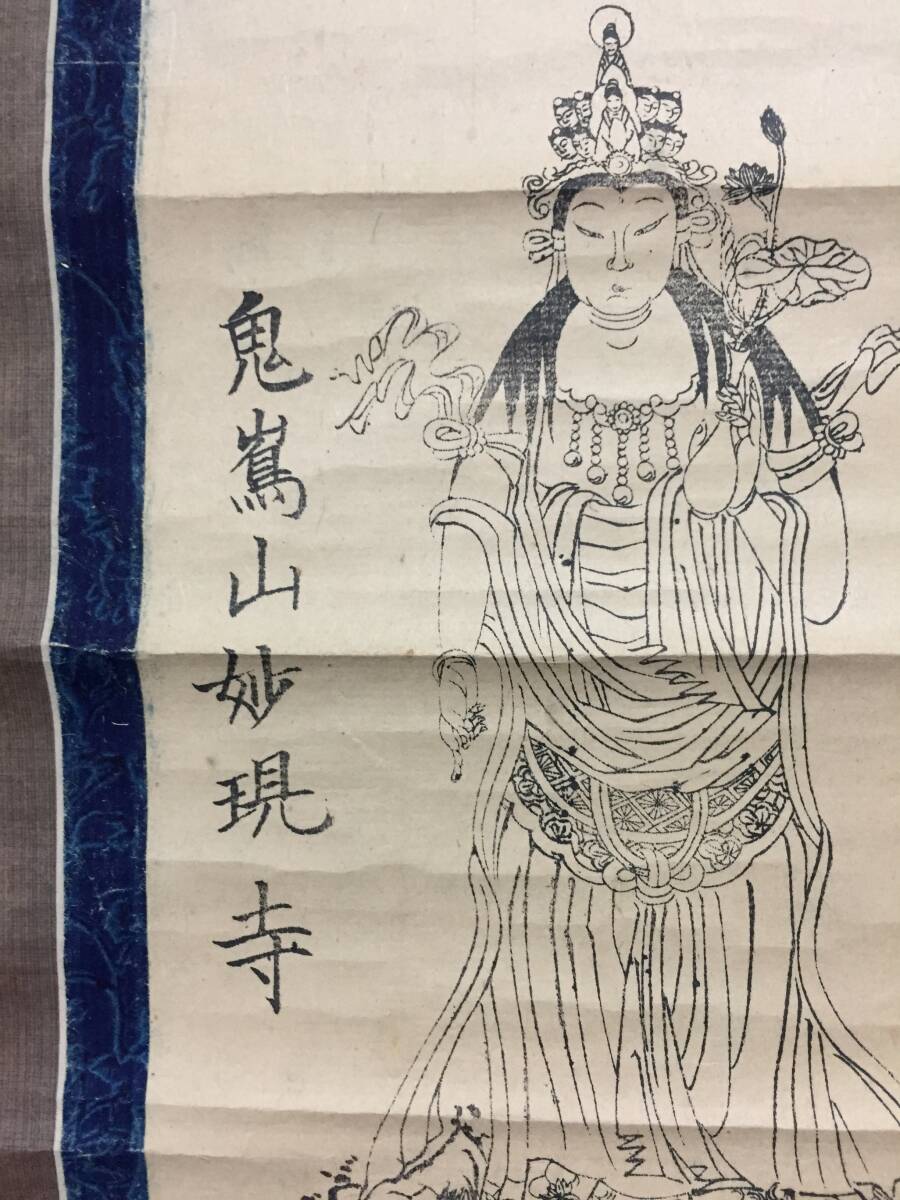 鬼嶌山妙現寺